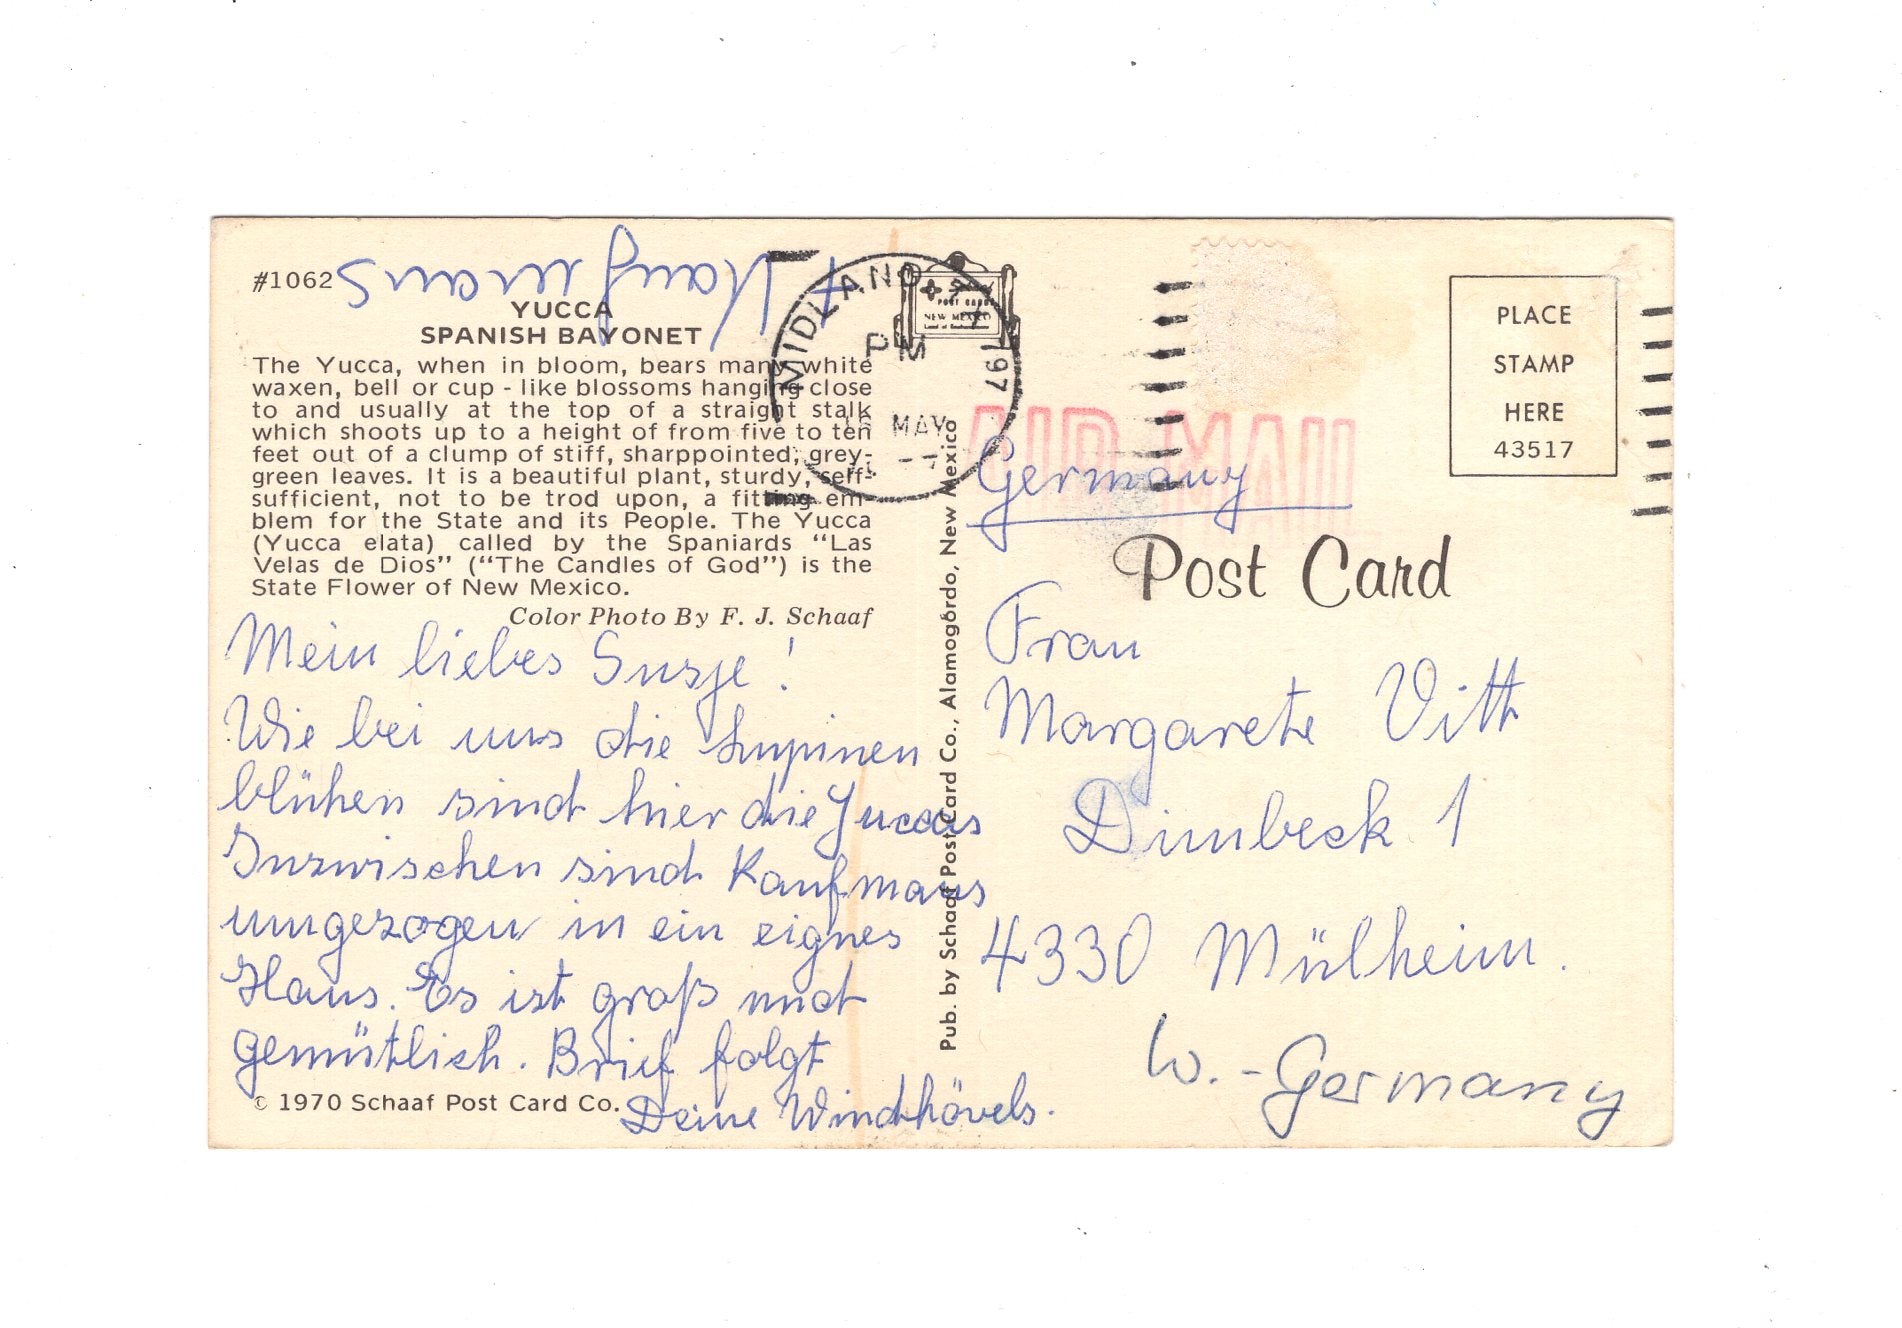 #1062
YUCCA
SPANISH BAYONET
The Yucca, when in bloom, bears many white
waxen, bell or cup - like blossoms hanging close
to and usually at the top of a straight stalk
which shoots up to a height of from five to ten
feet out of a clump of stiff, sharppointed, grey-
green leaves. It is a beautiful plant, sturdy, self-
sufficient, not to be trod upon, a fitting em-
blem for the State and its People. The Yucca
(Yucca elata) called by the Spaniards “Las
Velas de Dios” (“The Candles of God”) is the
State Flower of New Mexico.
Color Photo By F. J. Schaaf
Mein liebes Susje!
Wie bei uns die Lupinen
blühen sind hier die Yuccas
Inzwischen sind Kaufmans
umgezogen in ein eignes
Haus. Es ist groß und
gemütlich. Brief folgt
Deine Windhövels.
+ Kaufmans
© 1970 Schaaf Post Card Co.
Pub. by Schaaf Post Card Co., Alamogordo, New Mexico
MIDLAND
797
PM
16 MAY
POST CARDS
NEW MEXICO
AIR MAIL
PLACE
STAMP
HERE
43517
Germany
Post Card
Frau
Margarete Vitt
Dimbeck 1
4330 Mülheim.
W.-Germany